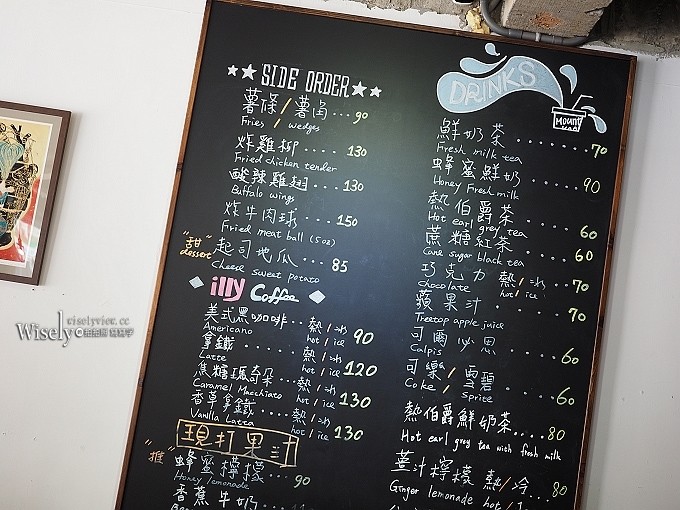 SIDE ORDER
薯條/薯角...90
Fries / wedges
炸雞柳....130
Fried chicken tender
酸辣雞翅....130
Buffalo wings
炸牛肉球....150
Fried meat ball (5oz)
"甜"
dessert
起司地瓜....85
Cheese sweet potato
illy Coffee
美式黑咖啡...熱/冰 90
Americano hot / ice
拿鐵.......熱/冰 120
Latte hot / ice
焦糖瑪奇朵...熱/冰 130
Caramel Macchiato hot / ice
香草拿鐵....熱/冰 130
Vanilla Latta hot / ice
現打果汁
"推"
蜂蜜檸檬...90
Honey lemonade
香蕉牛奶
DRINKS
Mount
鮮奶茶........70
Fresh milk tea
蜂蜜鮮奶.......90
Honey Fresh milk
熱伯爵茶.......60
Hot earl grey tea
蔗糖紅茶.......60
Cane sugar black tea
巧克力 熱/冰...70
Chocolate hot / ice
蘋果汁........70
Treetop apple juice
可爾必思.......60
Calpis
可樂/雪碧.....60
Coke / Sprite
熱伯爵鮮奶茶....80
Hot earl grey tea with fresh milk
薑汁檸檬 熱/冷...80
Ginger lemonade hot /
Wisely
wiselyview.cc